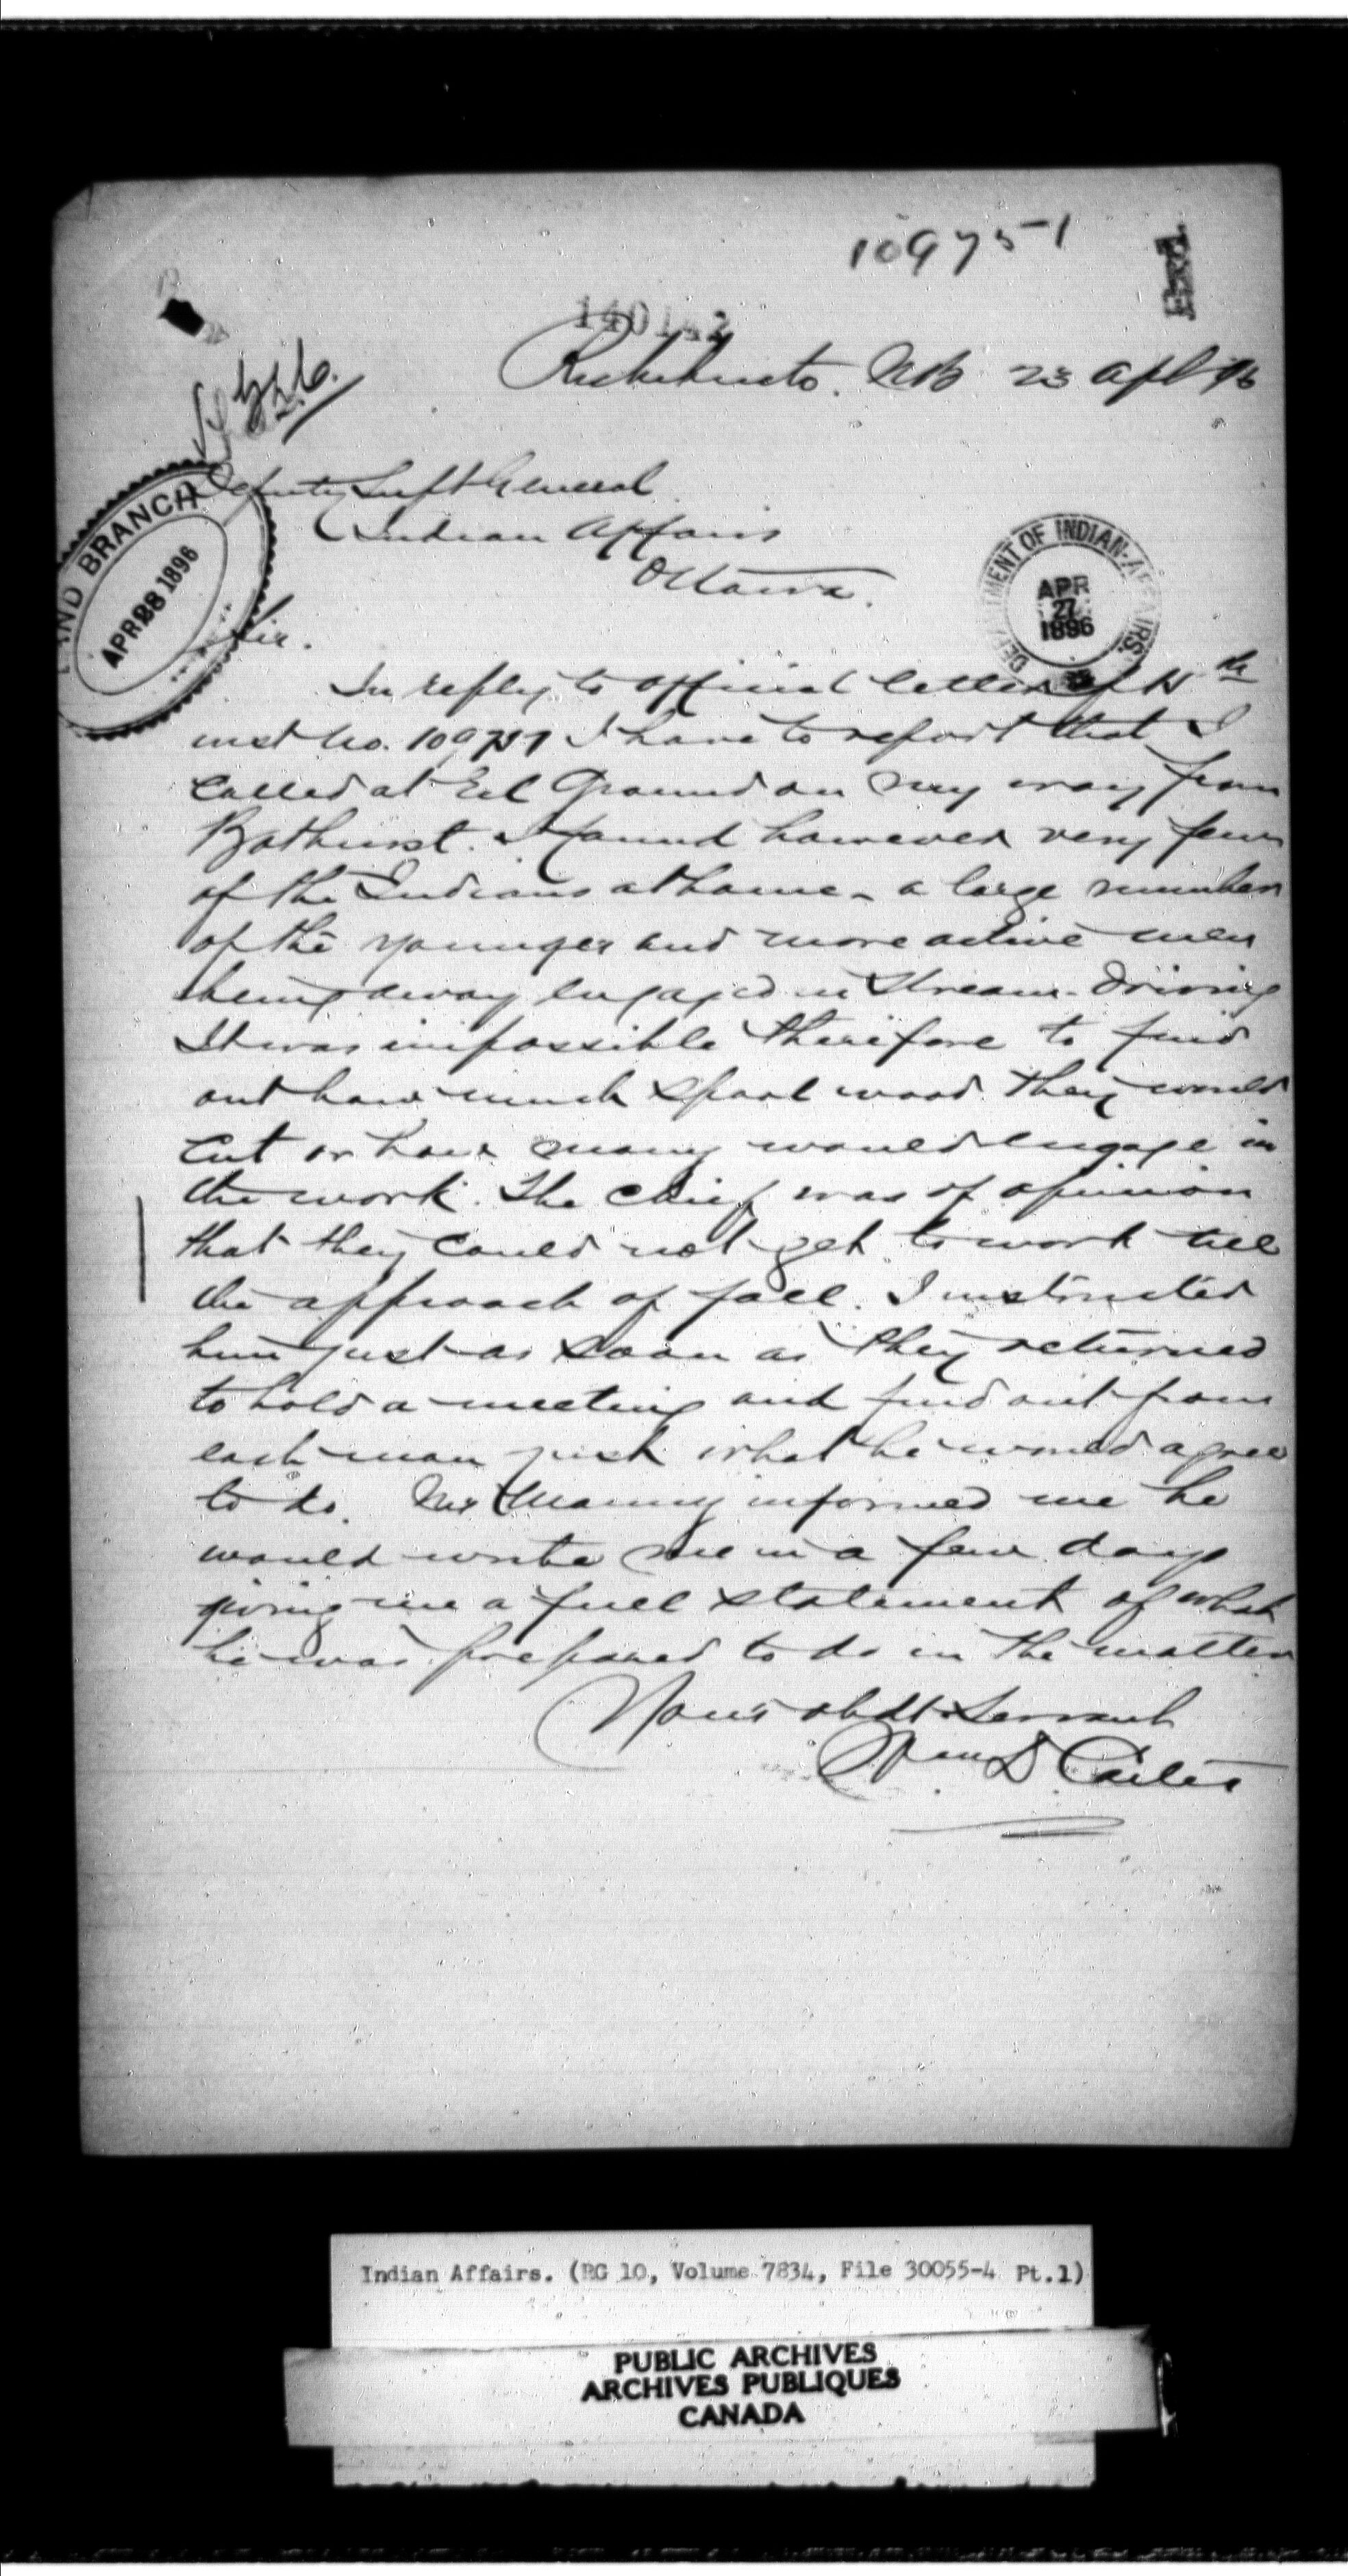 109751
140142
Richibucto. NB 23 Apl 96
Deputy Supt General
Indian Affairs
Ottawa.
LAND BRANCH
APR 28 1896
DEPARTMENT OF INDIAN AFFAIRS.
APR
27
1896
Sir.
In reply to official letter of 15th
inst No. 109751 I have to report that I
called at Eel Ground on my way from
Bathurst. I found however very few
of the Indians at home - a large number
of the younger and more active men
being away engaged in Stream-driving
It was impossible therefore to find
out how much spool wood they would
cut or how many would engage in
the work. The Chief was of opinion
that they could not get to work till
the approach of fall. I instructed
him just as soon as they returned
to hold a meeting and find out from
each man just what he would agree
to do. Mr Manny informed me he
would write me in a few days
giving me a full statement of what
he was prepared to do in the matter
Your obdt Servant
Wm D Carter
Indian Affairs. (RG 10, Volume 7834, File 30055-4 Pt.1)
PUBLIC ARCHIVES
ARCHIVES PUBLIQUES
CANADA